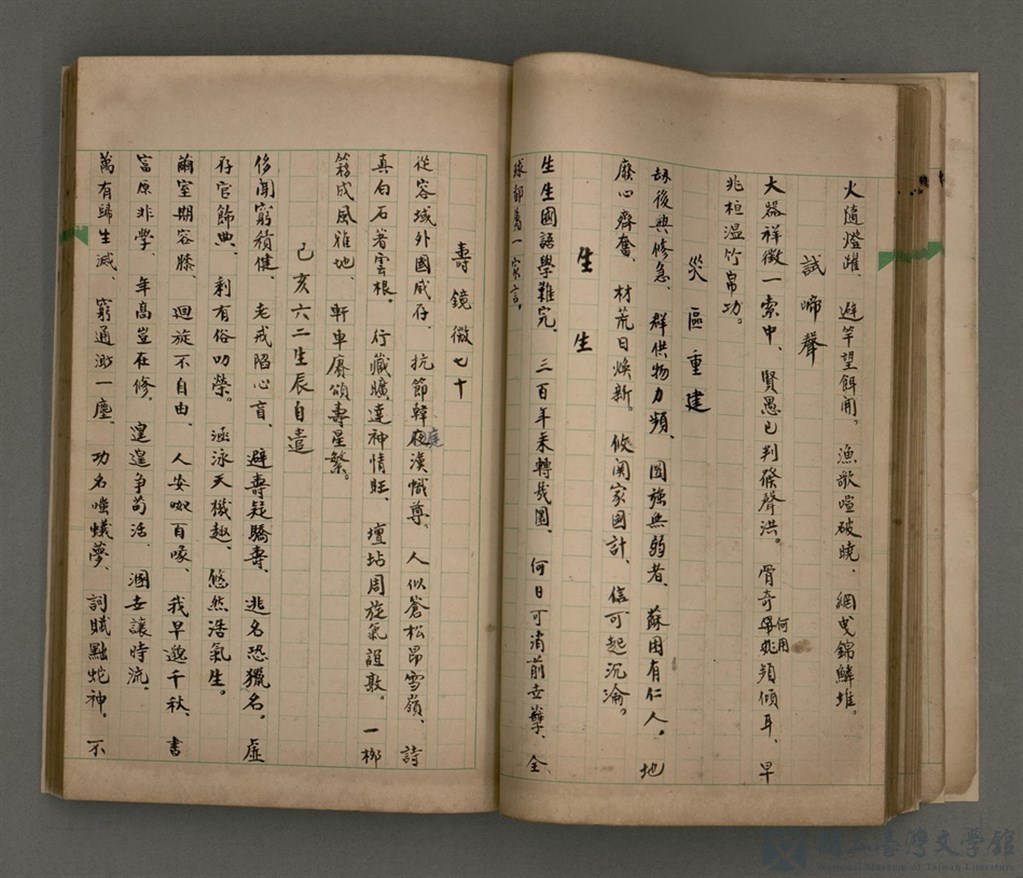 火隨燈躍、避竿望餌開。漁歌喧破曉、網曳錦鱗堆。
試啼聲
大器祥徵一索中、賢愚已判發聲洪。骨奇何用頻傾耳、早
兆桓溫竹帛功。
災區重建
劫後興修急、群供物力頻、圖強無弱者、蘇困有仁人。地
廢心齊奮、材荒日煥新。攸関家國計、信可起沉淪。
生生
生生國語學難完、三百年來轉幾圜、何日可消前世孽、全
球都為一家言。
壽鏡微七十
從容域外國威存、抗節韓庭漢幟尊、人似蒼松昂雪嶺、詩
真白石著雲根。行藏曠達神情旺、壇坫周旋氣誼敦。一櫛
籌成風雅地、軒車賡頌壽星繁。
己亥六二生辰自遣
侈閒窮殯健、老戒陷心盲、避壽疑驕壽、逃名恐獵名。虛
存官飾典、剩有俗叨榮。涵泳天機趣、悠然浩氣生。
蝸室期容膝、迴旋不自由、人安呶百喙、我早邈千秋、書
富原非學、年高豈在修、遑遑爭苟活、溷世讓時流、
萬有歸生滅、窮通渺一塵、功名嗤蟻夢、詞賦黜蛇神。不